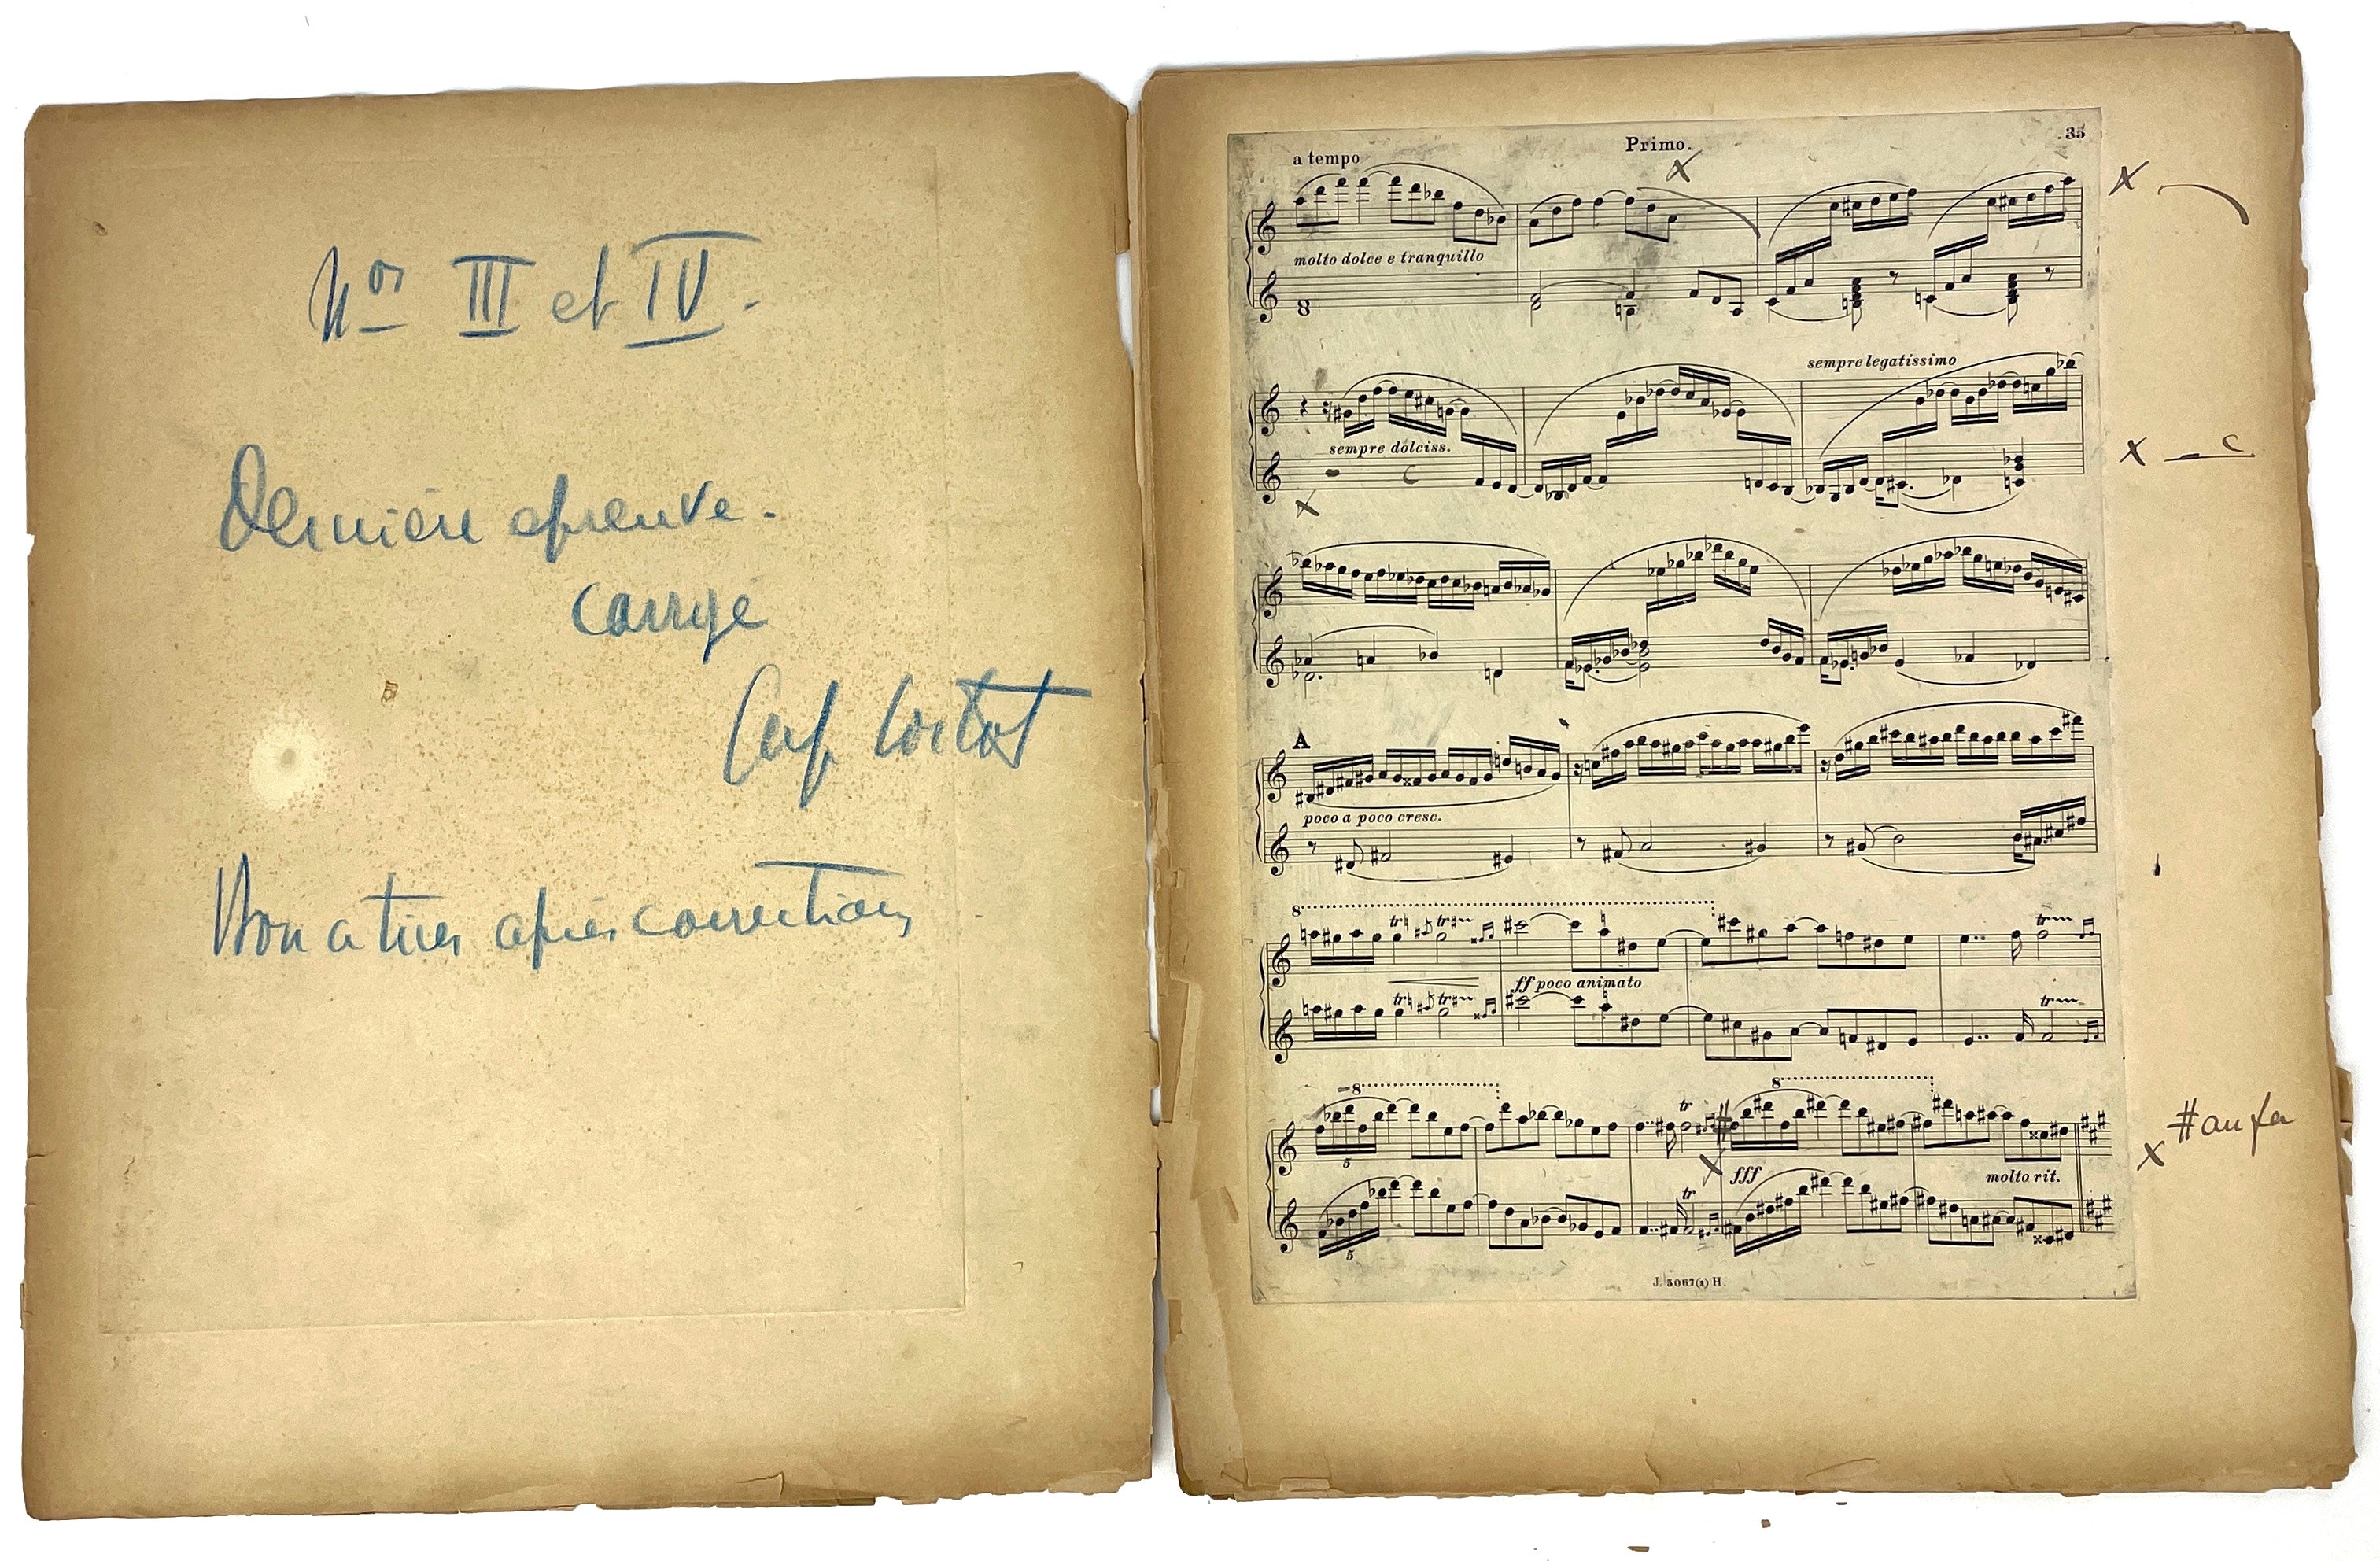 Nos III et IV.
Dernière épreuve.
corrigé
Alf. Cortot
Bon a tirer après corrections
Primo.
35
a tempo
molto dolce e tranquillo
sempre legatissimo
sempre dolciss.
A
poco a poco cresc.
8
tr tr tr
ff poco animato
tr tr tr
8 8
tr
5
# au fa
fff
molto rit.
tr
5
J. 5067(3) H.